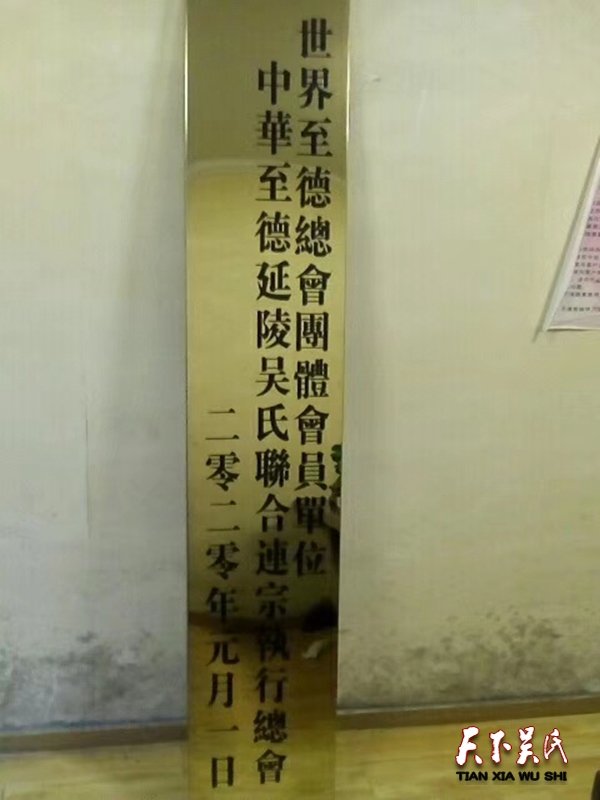 世界至德總會團體會員單位
中華至德延陵吴氏聯合連宗執行總會
二零二零年元月一日
天下吴氏
TIAN XIA WU SHI